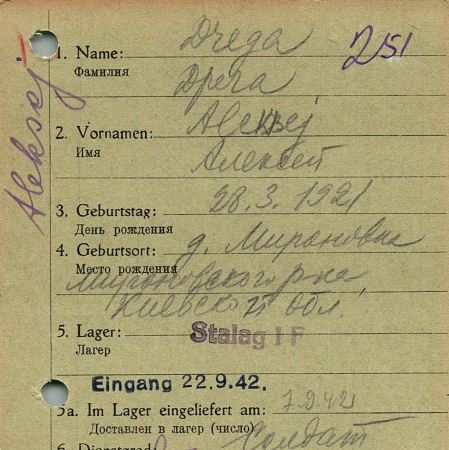 251
1. Name: Drega
Фамилия Дрега
Aleksej
2. Vornamen: Aleksej
Имя Алексей
3. Geburtstag: 28.3.1921
День рождения
4. Geburtsort: д. Мироновка
Место рождения
Мироновского р-на
Киевской обл.
5. Lager: Stalag I F
Лагер
Eingang 22.9.42.
5a. Im Lager eingeliefert am: 7.9.42
Доставлен в лагер (число)
6. Dienstgrad: Солдат